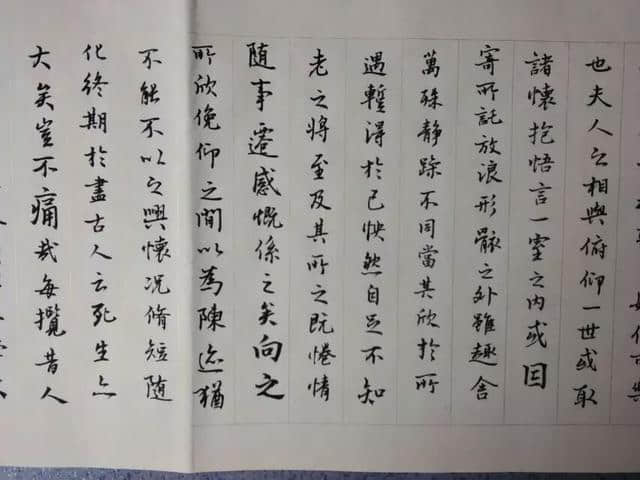 也夫人之相與俯仰一世或取
諸懷抱悟言一室之内或因
寄所託放浪形骸之外雖趣舍
萬殊静躁不同當其欣於所
遇蹔得於己怏然自足不知
老之将至及其所之既惓情
随事遷感慨係之矣向之
所欣俛仰之間以為陳迹猶
不能不以之興懷况脩短随
化終期於盡古人云死生亦
大矣豈不痛哉每攬昔人